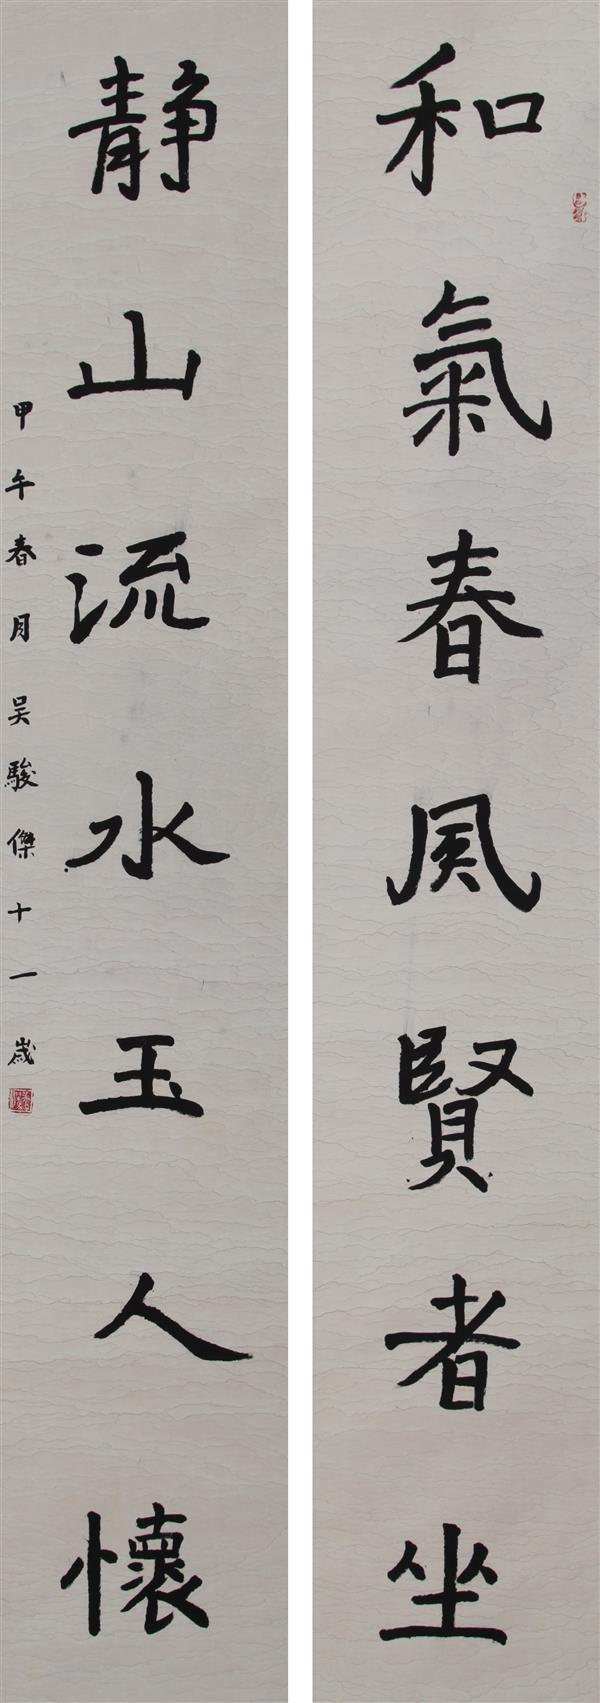 和氣春風賢者坐
静山流水玉人懷
甲午春月吴駿傑十一歲